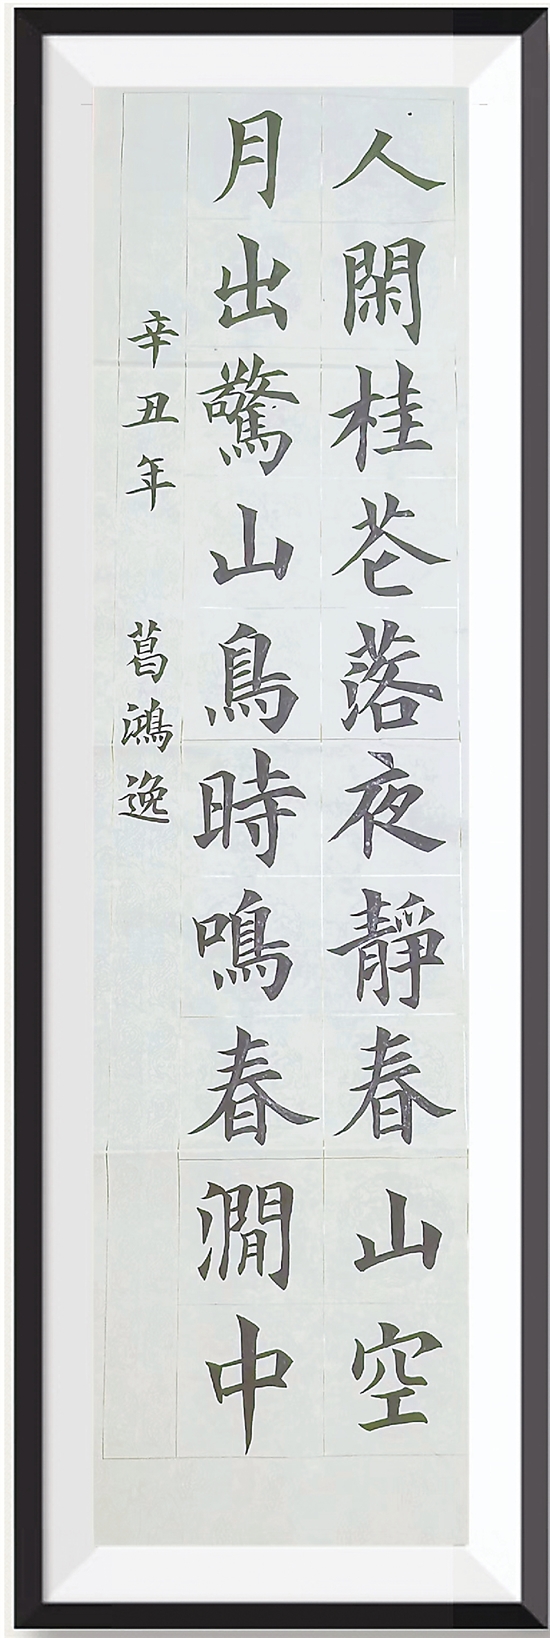 人閑桂花落夜靜春山空
月出驚山鳥時鳴春澗中
辛丑年 葛鴻逸